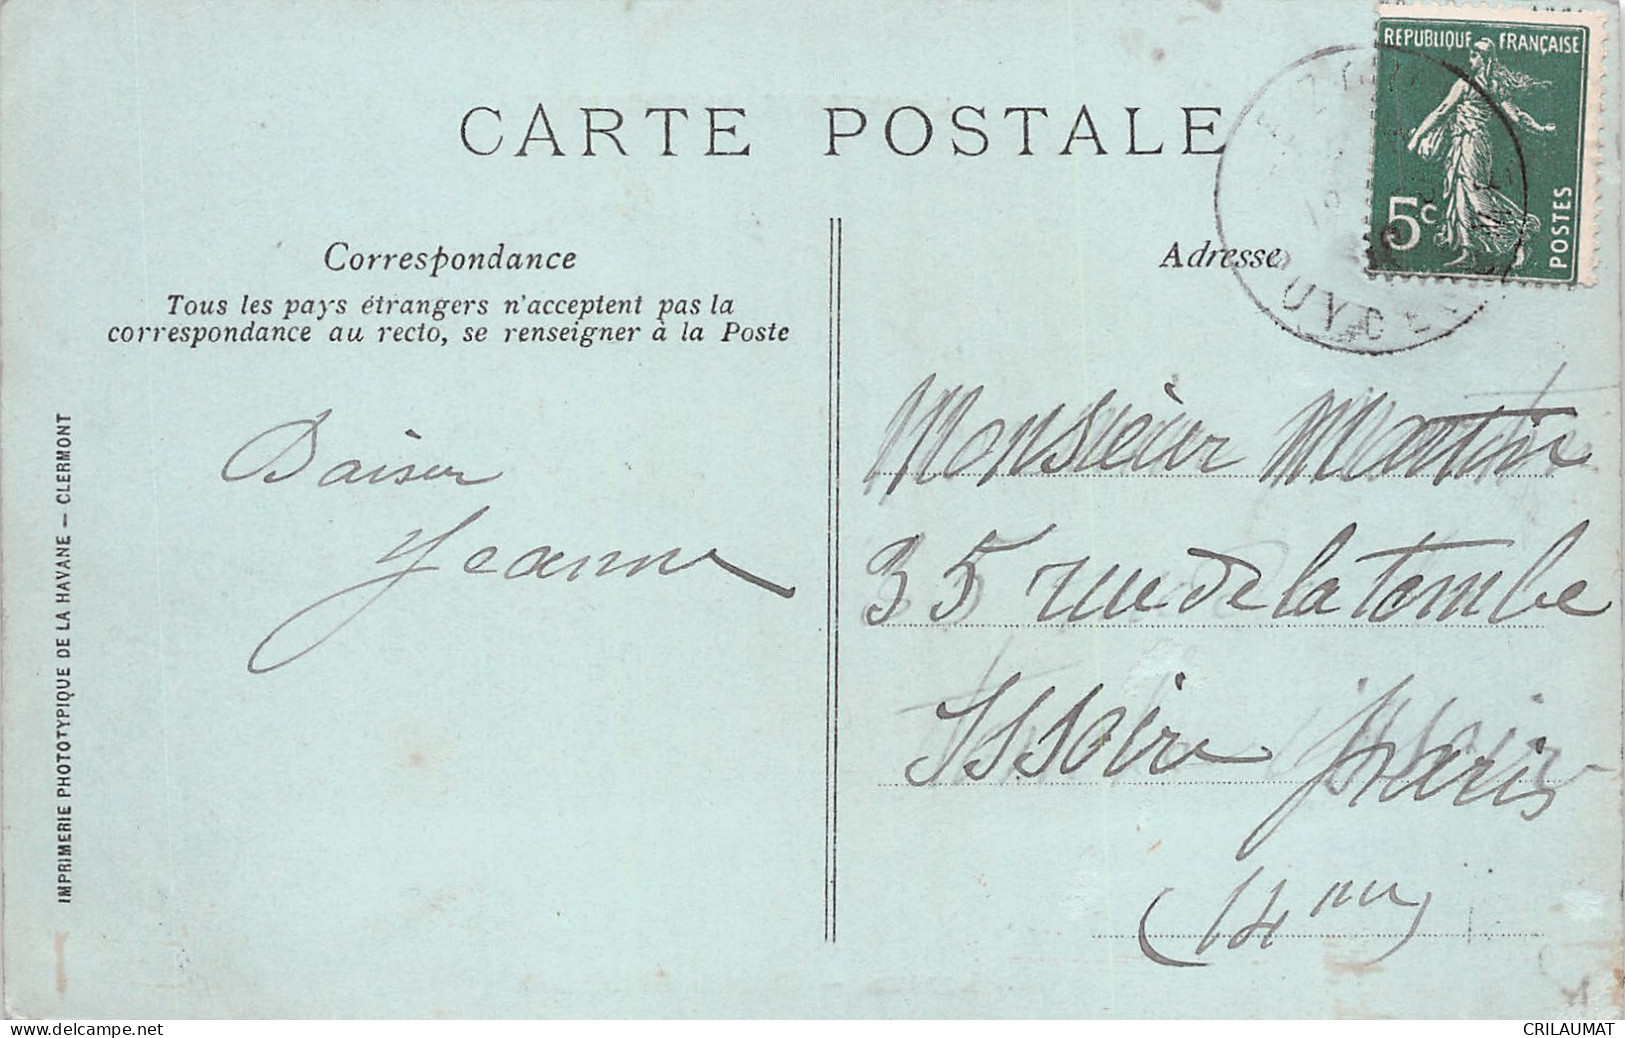 REPUBLIQUE FRANÇAISE
5c
POSTES
CARTE POSTALE
Correspondance
Tous les pays étrangers n'acceptent pas la
correspondance au recto, se renseigner à la Poste
Baiser
Jeanne
Adresse
Monsieur Martin
35 rue de la Tombe
Issoire Paris
(14me)
IMPRIMERIE PHOTOTYPIQUE DE LA HAVANE — CLERMONT
www.delcampe.net
CRILAUMAT